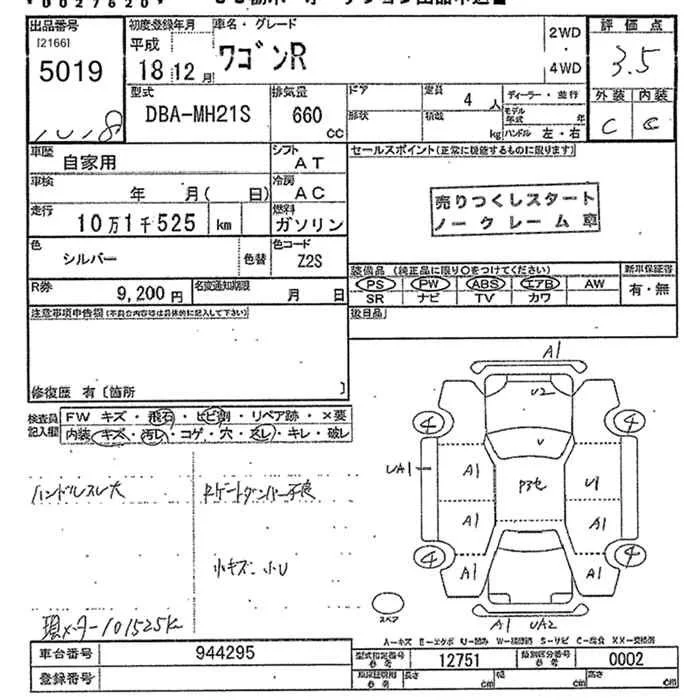 出品番号 初度登録年月 車名・グレード 2WD 評価点
[2166] 平成 ワゴンR ・ 3.5
5019 18 12 月 4WD 外装 内装
1018 型式 排気量 ドア 定員 4 人 ディーラー・並行 C C
DBA-MH21S 660 CC 形状 積載 kg モデル年式 年
ハンドル 左・右
車歴 自家用 シフト AT セールスポイント(正常に機能するものに限ります)
車検 年 月( 日) 冷房 AC 売りつくしスタート
走行 10万1千525 km 燃料 ガソリン ノークレーム車
色 シルバー 色替 色コード Z2S
装備品 (純正品に限り○をつけてください) 新車保証書
R券 9,200 円 名変通知期限 月 日 PS PW ABS エアB AW 有・無
SR ナビ TV カワ
注意事項申告欄(不具合内容は具体的に記入して下さい) 後日品
修復歴 有〔箇所 〕
検査員 FW キズ・飛石・ヒビ割・リペア跡・×要
記入欄 内装 キズ・汚レ・コゲ・穴・スレ・キレ・破レ
ハンドルスレ大 Rゲートダンパー不良
小キズ 小U
現メーター101525K
A1
U2
4 4
V
UA1 A1 P3セ U1
A1 A1
4 4
A1 A1
スペア A1 UA2
A-キズ E-エクボ U-凹み W-補修跡 S-サビ C-腐食 XX-交換済
車台番号 944295 型式指定番号 参考 12751 類別区分番号 参考 0002
登録番号 参考 長さ cm 幅 cm 高さ cm